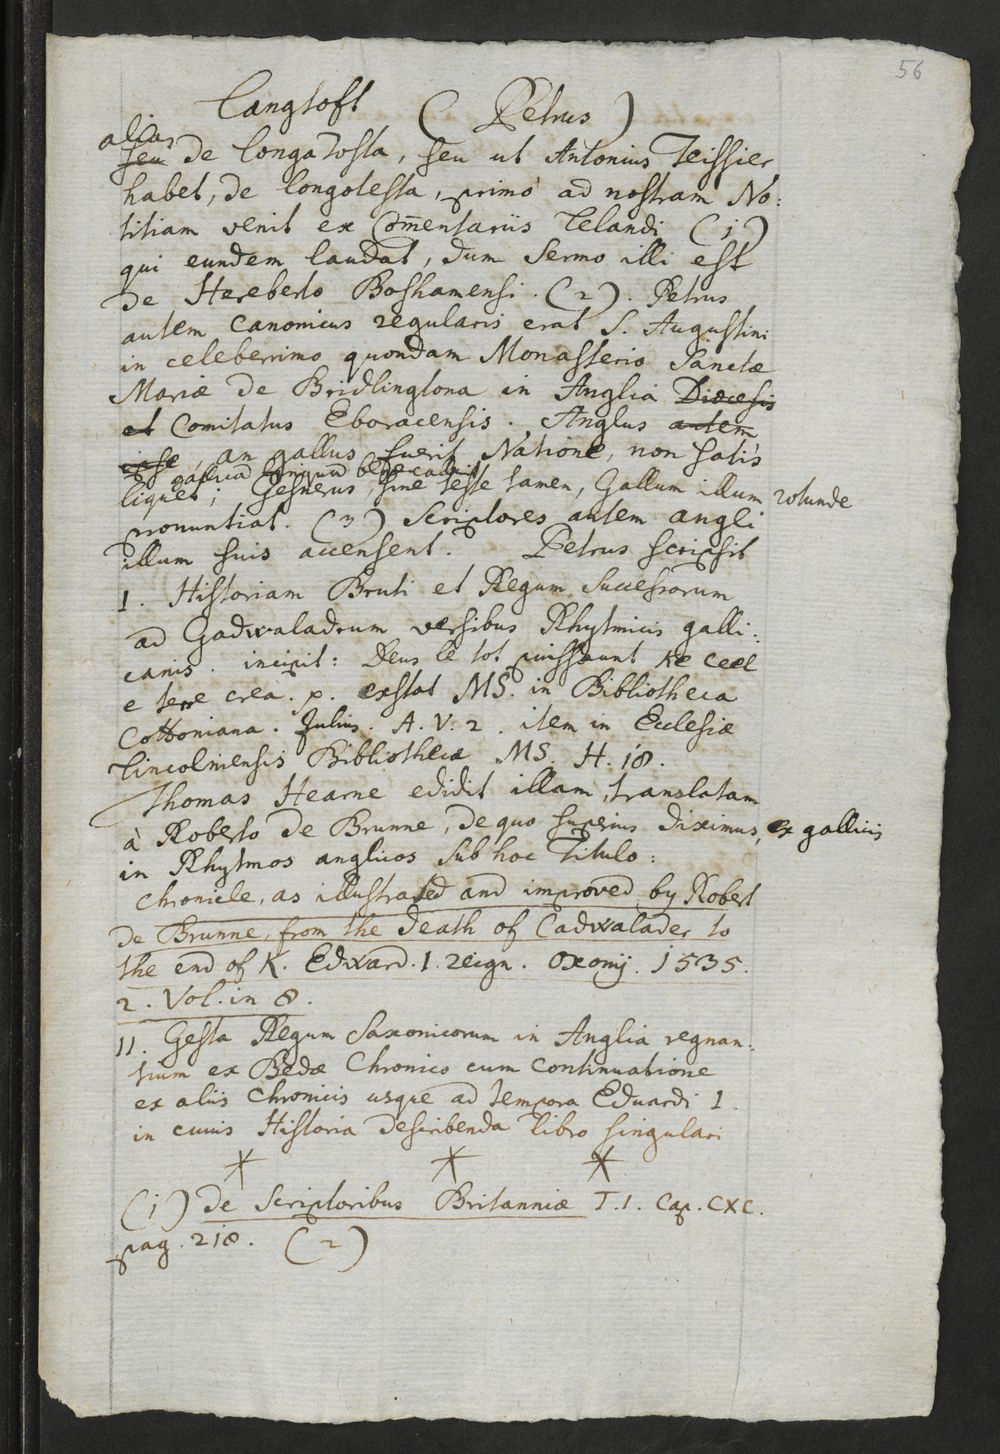 56
Langtoft (Petrus)
alias
seu de Longatosta, seu ut Antonius Teissier
habet, de Longotesta, primò ad nostram No:
titiam venit ex Com̄entariis Lelandi (1)
qui eundem laudat, dum sermo illi est
de Hereberto Boshamensi. (2). Petrus
autem Canonicus regularis erat S. Augustini
in celeberrimo quondam Monasterio Sanctæ
Mariæ de Bridlingtona in Anglia Diœcesis
et Comitatus Eboracensis. Anglus autem
ipse, an gallus fuerit Natione, non satis
gallicam linguam bene
liquet; Gesnerus sine teste tamen, Gallum illum rotunde
pronuntiat. (3) Scriptores autem angli
illum suis accensent. Petrus scripsit
1. Historiam Bruti et Regum Successorum
ad Gadwaladrum versibus Rhytmicis galli:
canis. incipit: Deus le tot puissaunt ke ceel
e terre crea. p. exstat MS. in Bibliotheca
Cottoniana. Julius. A. V. 2. item in Ecclesiæ
Lincolniensis Bibliotheca MS. H. 18.
Thomas Hearne edidit illam, translatam
à Roberto de Brunne, de quo superius diximus, ex gallicis
in Rhytmos anglicos sub hoc Titulo:
Chronicle, as illustrated and improved by Robert
de Brunne, from the Death of Cadwalader to
the end of K. Edward. 1. reign. Oxonij. 1535.
2. Vol. in 8.
11. Gesta Regum Saxonicorum in Anglia regnan:
tium ex Bedæ Chronico cum Continuatione
ex aliis Chronicis usque ad tempora Eduardi 1.
in cuius Historia describenda libro singulari
* * *
(1) De Scriptoribus Britanniæ T. 1. Cap. CXC.
pag. 218. (2)